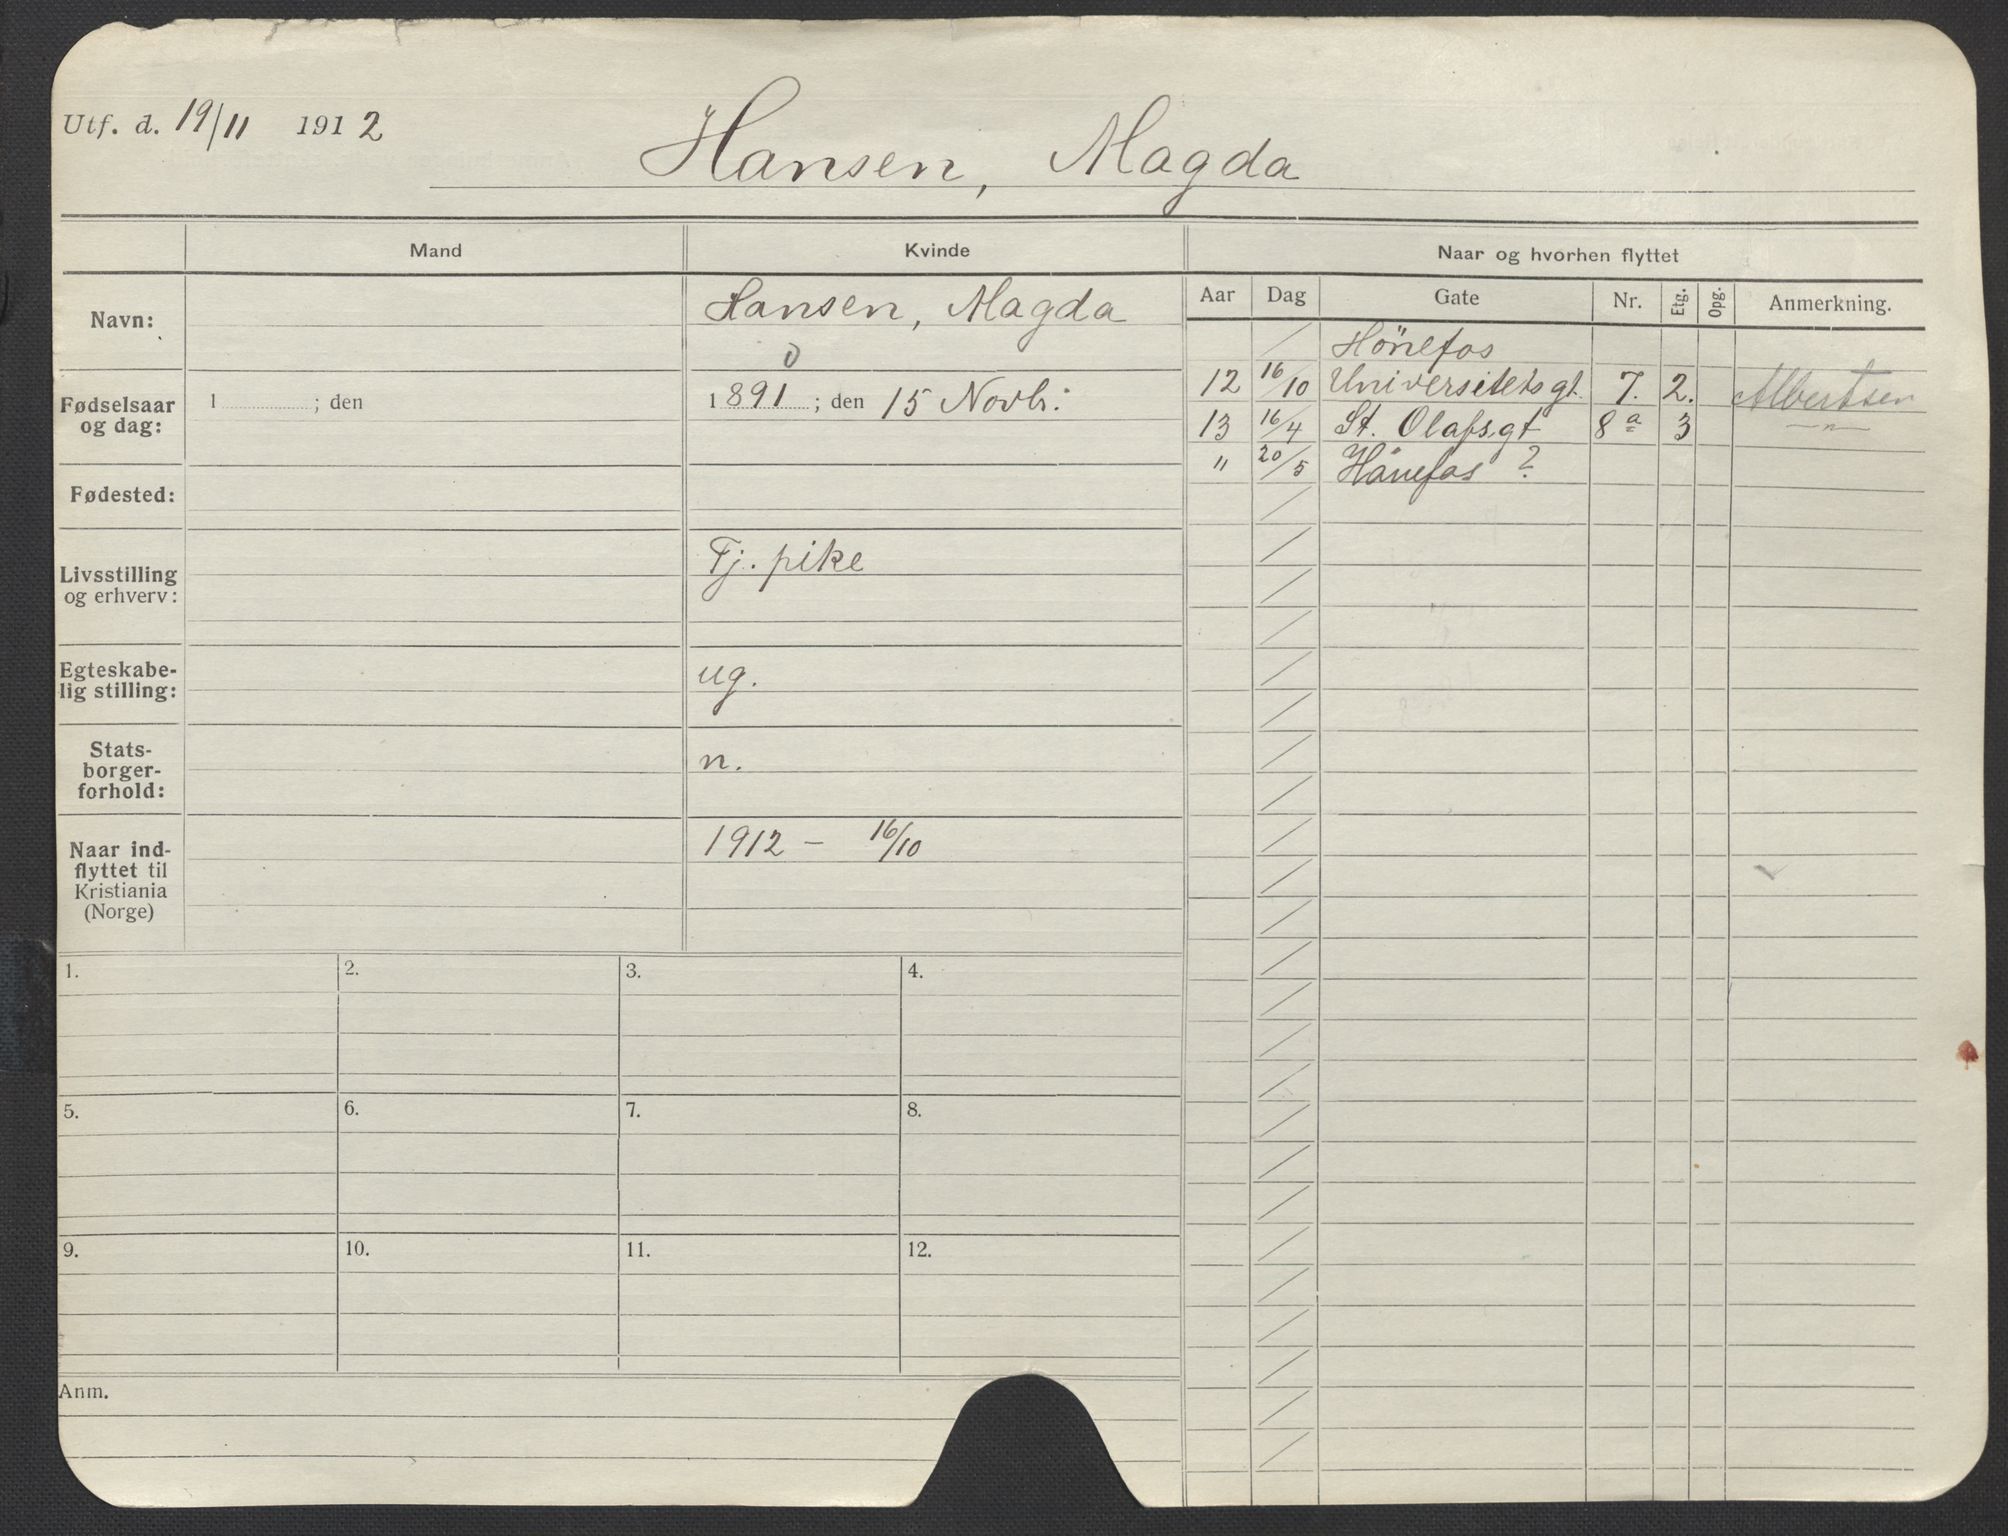 Utf. d. 19/11 1912
Hansen, Magda
Mand
Kvinde
Naar og hvorhen flyttet
Aar Dag Gate Nr. Etg. Opg. Anmerkning.
Navn: Hansen, Magda
Fødselsaar og dag: 1 ; den
1891 ; den 15 Novbr:
Fødested:
Livsstilling og erhverv: Tj. pike
Egteskabe-
lig stilling: ug.
Stats-
borger-
forhold: n.
Naar ind-
flyttet til
Kristiania
(Norge) 1912 – 16/10
Hönefos
12 16/10 Universitetsgt. 7. 2. Albertsen
13 16/4 St. Olafs.gt 8a 3 — " —
" 20/5 Hönefos ?
1. 2. 3. 4.
5. 6. 7. 8.
9. 10. 11. 12.
Anm.